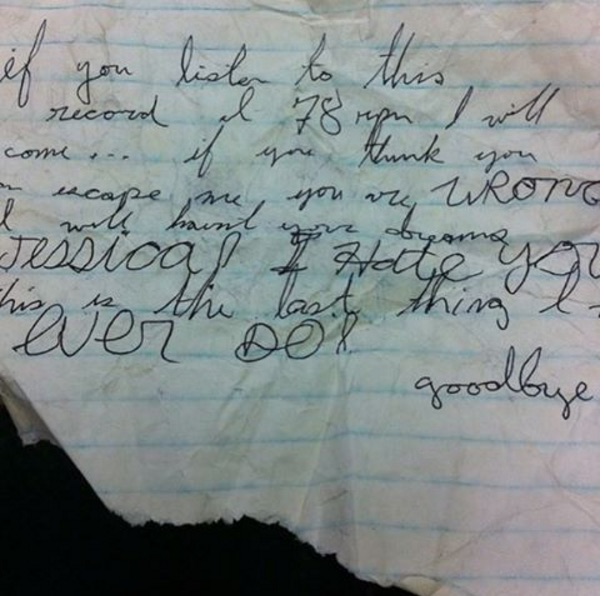 if you listen to this
record at 78 rpm I will
come... if you think you
escape me, you are WRONG
I will haunt your dreams
Jessica! I Hate You
this is the last thing I
ever DO!
goodbye